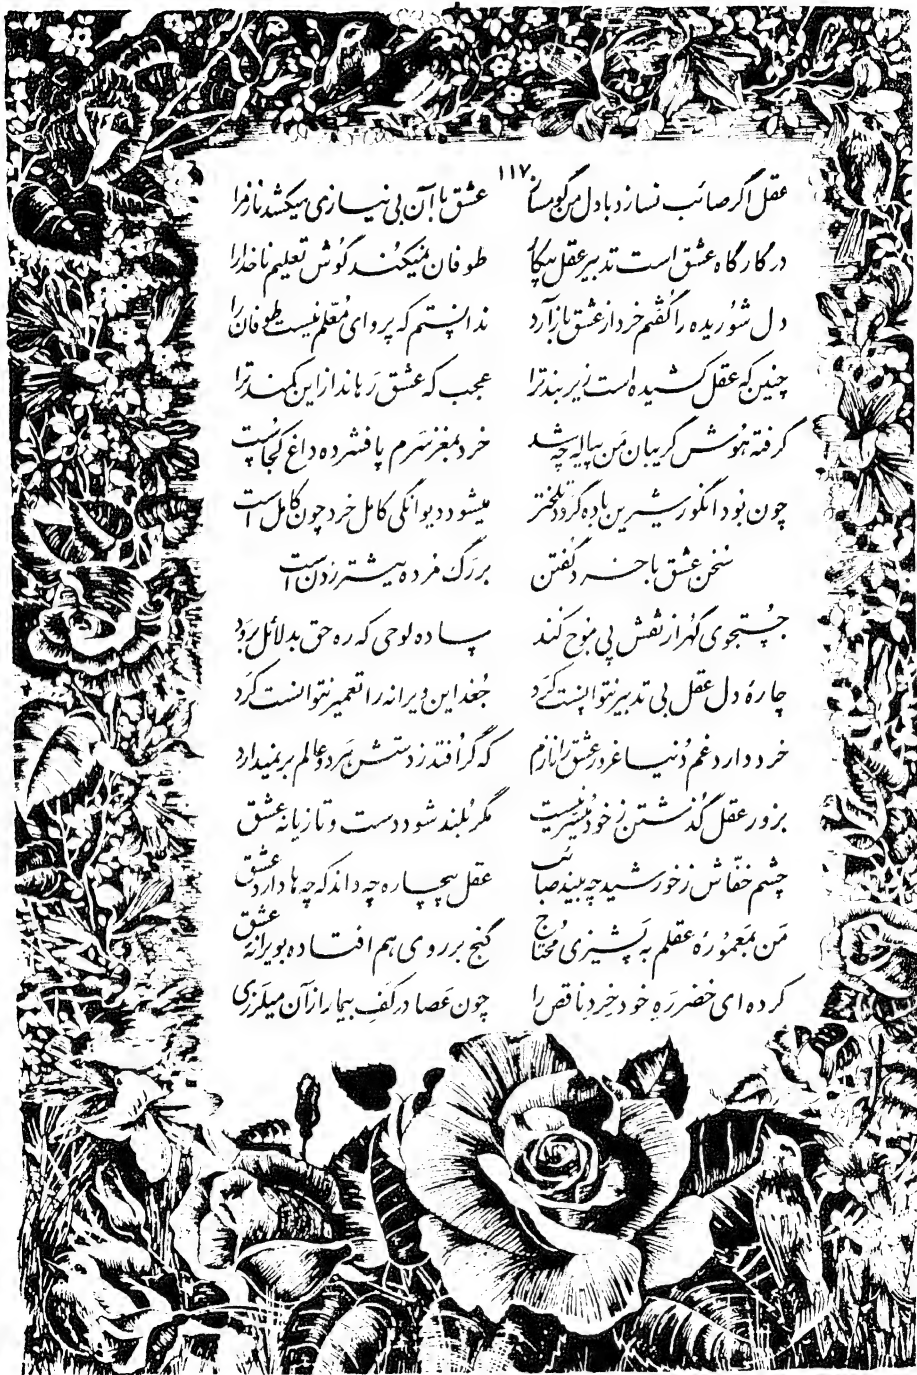 ۱۱۷
عقل اگر صائب نسازد با دل من گو مساز عشق با آن بی نیازی میکشد ناز مرا
در کارگاه عشق است تدبیر عقل بیکار طوفان نمیکند گوش تعلیم ناخدا را
دل شوریده را گفتم خرد از عشق باز آرد ندانستم که پروای معلم نیست طوفان را
چنین که عقل کشیده است زیر بند ترا عجب که عشق رهاند از این کمند ترا
گرفته هوش گریبان من پیاله چه شد خرد بمغز سرم پا فشرده داغ کجاست
چون بود انگور شیرین باده گردد تلختر میشود دیوانگی کامل خرد چون کامل است
سخن عشق با خرد گفتن بر رگ مرده نیشتر زدن است
جستجوی گهر از نقش پی موج کند ساده لوحی که ره حق بدلائل برود
چارهٔ دل عقل بی تدبیر نتوانست کرد جغد این ویرانه را تعمیر نتوانست کرد
خرد دارد غم دنیا غرور عشق را نازم که گر افتد ز دستش هر دو عالم بر نمیدارد
بزور عقل گذشتن ز خود میسر نیست مگر بلند شود دست و تازیانه عشق
چشم خفاش ز خورشید چه بیند صائب عقل بیچاره چه داند که چه ها دارد عشق
من بمعمورهٔ عقلم به پشیزی محتاج گنج بر روی هم افتاده بویرانهٔ عشق
کرده ای خضر ره خود خرد ناقص را چون عصا در کف بیمار از آن میلرزی